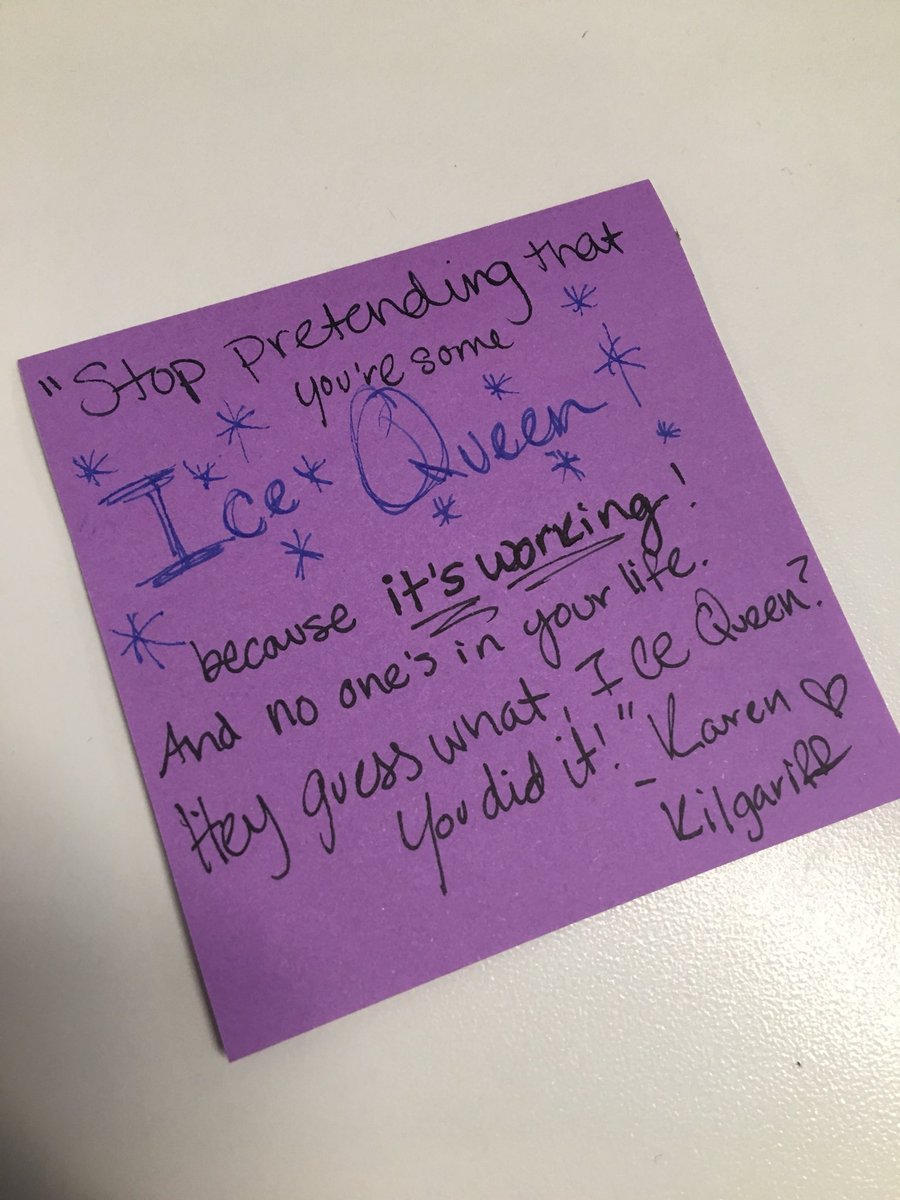 "Stop pretending that
you're some
Ice Queen!
because it's working!
And no one's in your life.
Hey guess what, Ice Queen?
You did it!" - Karen ♡
Kilgariff